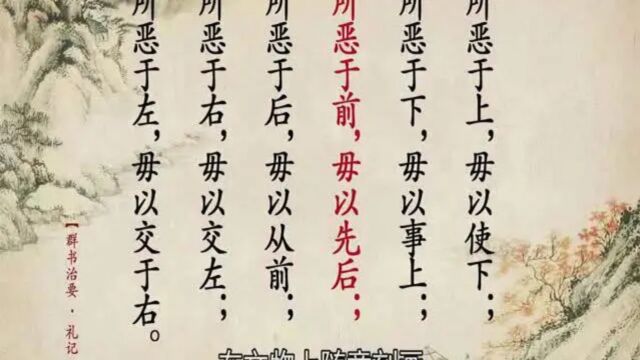 所恶于上，毋以使下；
所恶于下，毋以事上；
所恶于前，毋以先后；
所恶于后，毋以从前；
所恶于右，毋以交左；
所恶于左，毋以交于右。
【群书治要·礼记
在文物上随意刻画